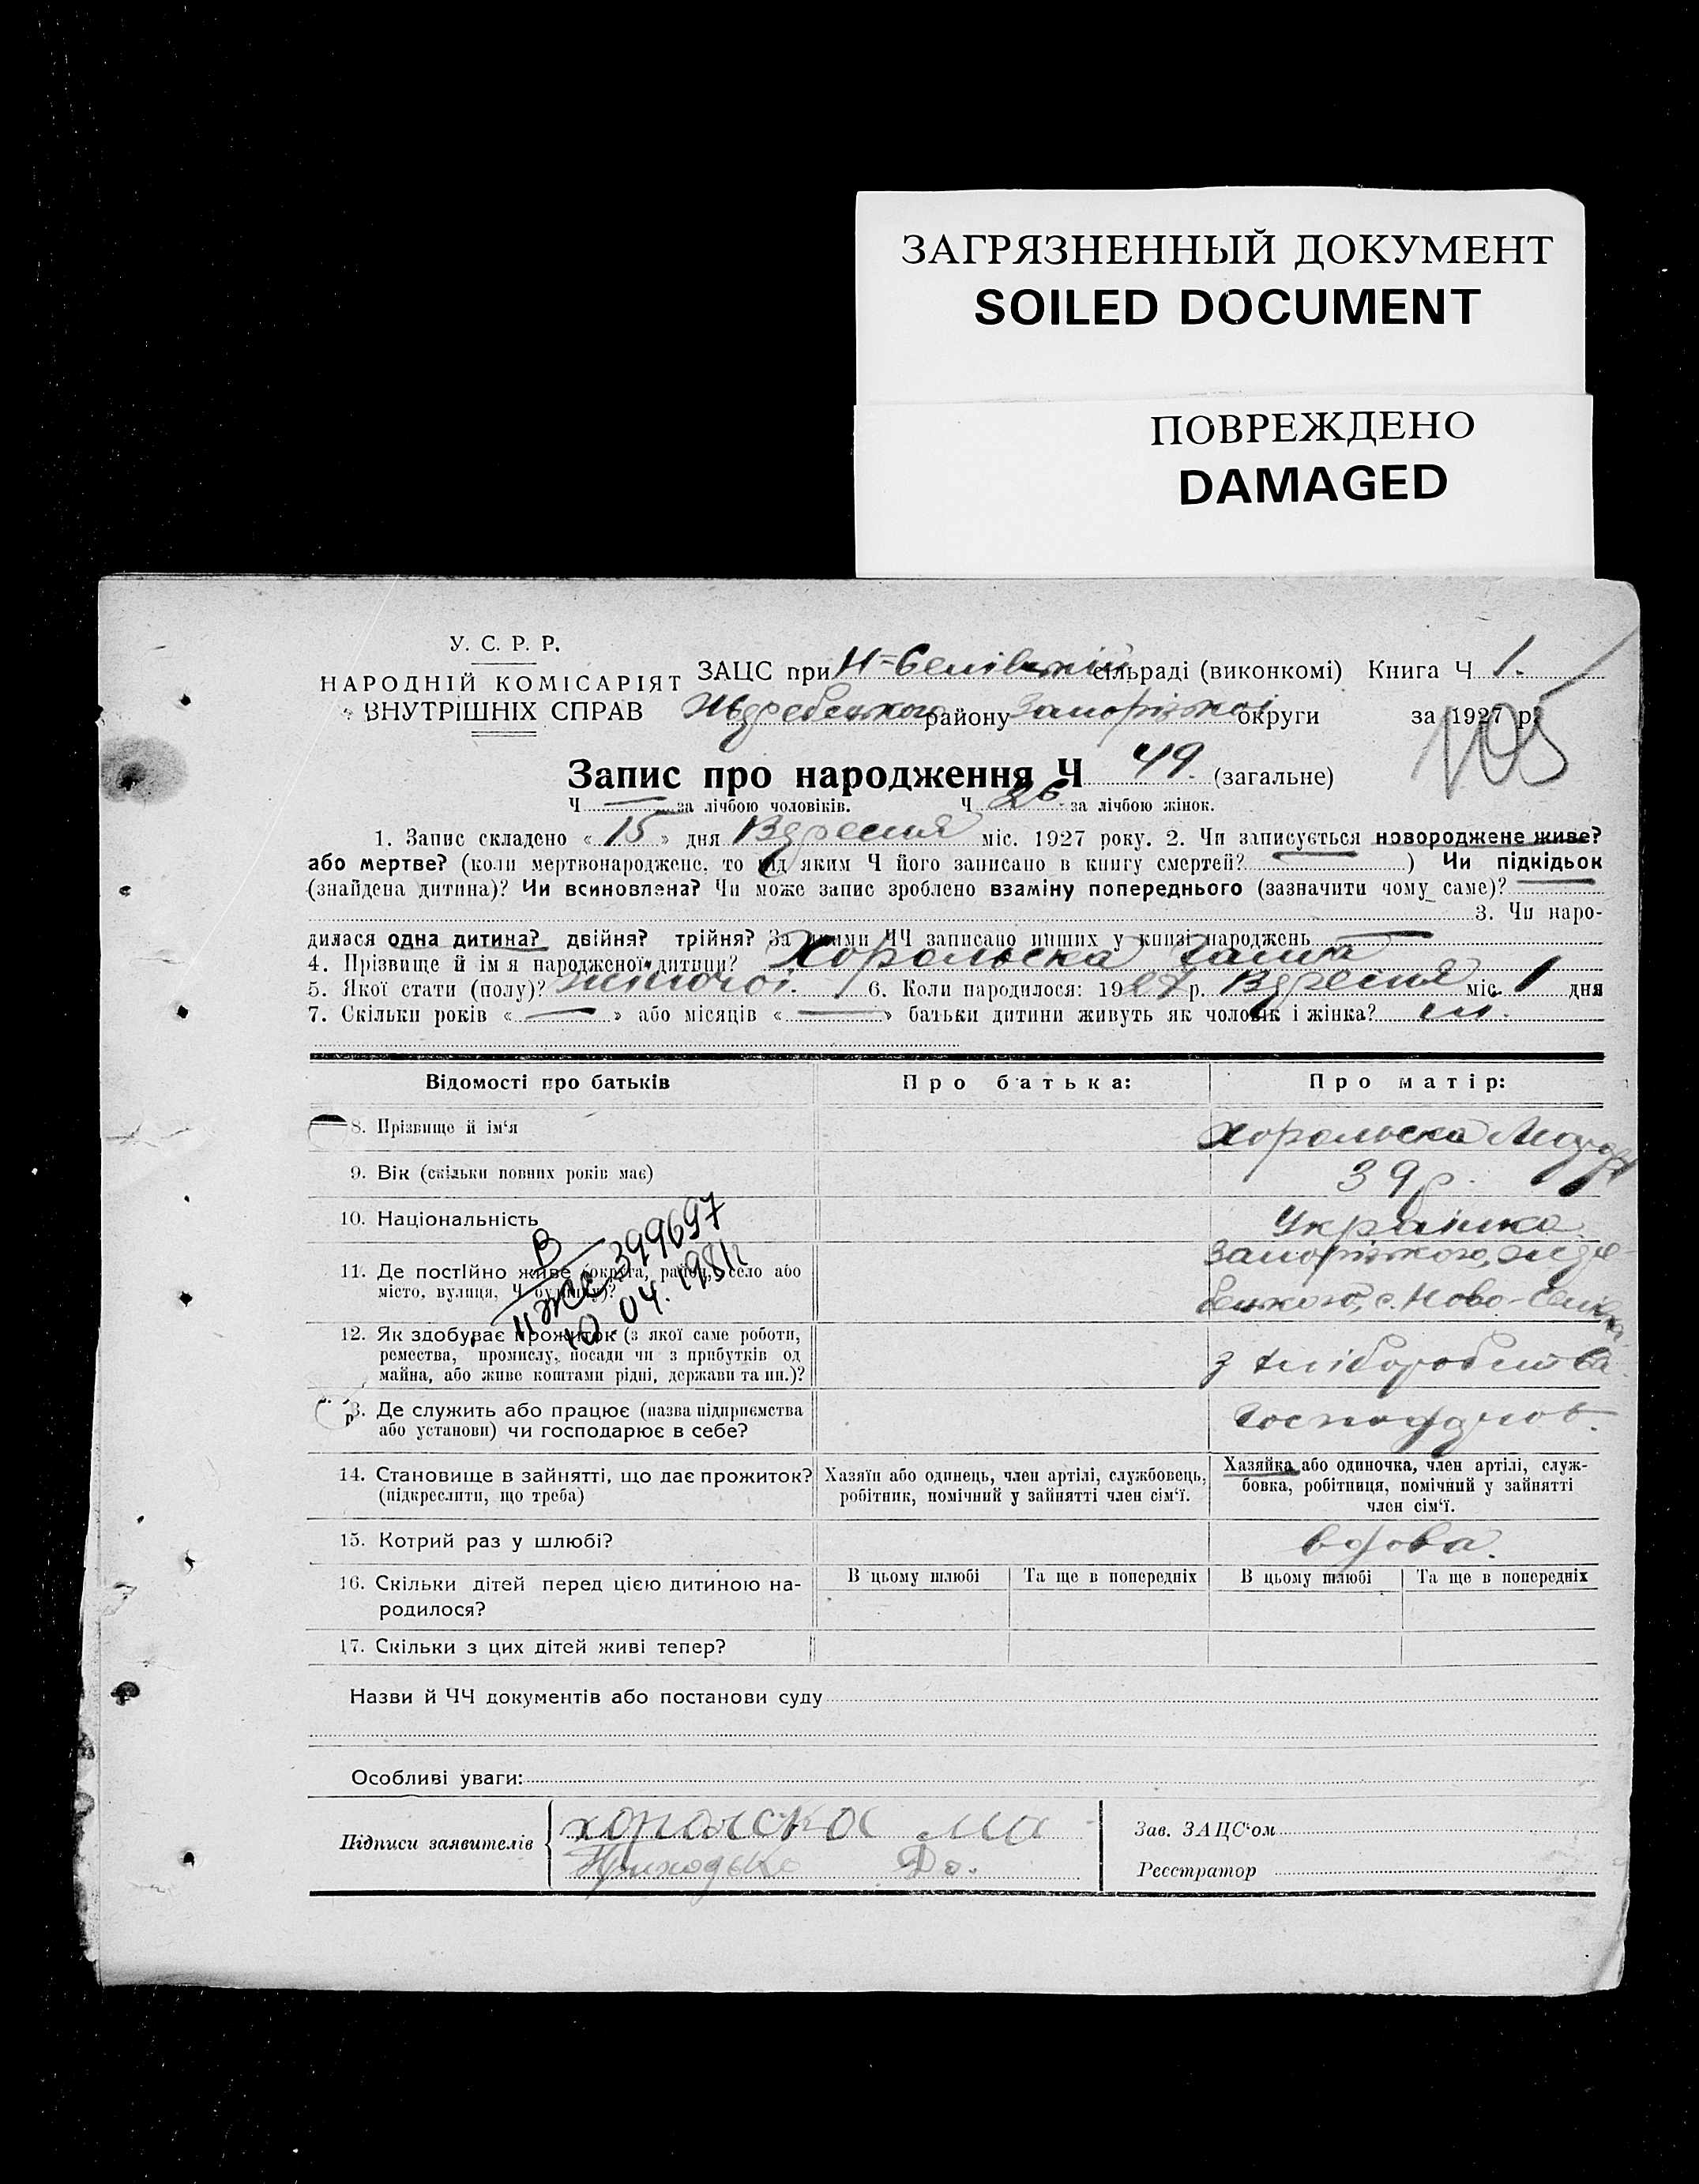 ЗАГРЯЗНЕННЫЙ ДОКУМЕНТ
SOILED DOCUMENT
ПОВРЕЖДЕНО
DAMAGED
У. С. Р. Р.
НАРОДНІЙ КОМІСАРІЯТ
ВНУТРІШНІХ СПРАВ
ЗАЦС при Н-Селівській сільраді (виконкомі) Книга Ч 1.
Жеребецького району Запорізької округи за 1927 р.
105
Запис про народження Ч 49. (загальне)
Ч — за лічбою чоловіків. Ч 26 за лічбою жінок.
1. Запис складено « 15 » дня Вересня міс. 1927 року. 2. Чи записується новороджене живе?
або мертве? (коли мертвонароджене, то під яким Ч його записано в книгу смертей? — ) Чи підкідьок
(знайдена дитина)? Чи всиновлена? Чи може запис зроблено взаміну попереднього (зазначити чому саме)? —
3. Чи наро-
дилася одна дитина? двійня? трійня? За якими ЧЧ записано інших у книзі народжень —
4. Прізвище й ім'я народженої дитини? Хорольска Ганна
5. Якої стати (полу)? жіночої. 6. Коли народилося: 1927 р. Вересня міс. 1 дня
7. Скільки років « — » або місяців « — » батьки дитини живуть як чоловік і жінка?
Відомості про батьків
Про батька:
Про матір:
8. Прізвище й ім'я
Хорольска
9. Вік (скільки повних років має)
39 р.
10. Національність
Українка
11. Де постійно живе (округа, район, село або
місто, вулиця, Ч будинку)?
Запорізького, Жере-
бецького, с. Ново-Селівка
В
ІІ ЖС 399697
10 04. 1981
12. Як здобуває прожиток (з якої саме роботи,
ремества, промислу, посади чи з прибутків од
майна, або живе коштами рідні, держави та ин.)?
з хліборобства
13. Де служить або працює (назва підприємства
або установи) чи господарює в себе?
14. Становище в зайнятті, що дає прожиток?
(підкреслити, що треба)
Хазяїн або одинець, член артілі, службовець,
робітник, помічний у зайнятті член сім'ї.
Хазяйка або одиночка, член артілі, служ-
бовка, робітниця, помічний у зайнятті
член сім'ї.
15. Котрий раз у шлюбі?
вдова.
16. Скільки дітей перед цією дитиною на-
родилося?
В цьому шлюбі Та ще в попередніх В цьому шлюбі Та ще в попередніх
17. Скільки з цих дітей живі тепер?
Назви й ЧЧ документів або постанови суду
Особливі уваги:
Підписи заявителів
хоролска ма
Приходько До.
Зав. ЗАЦС'ом
Реєстратор